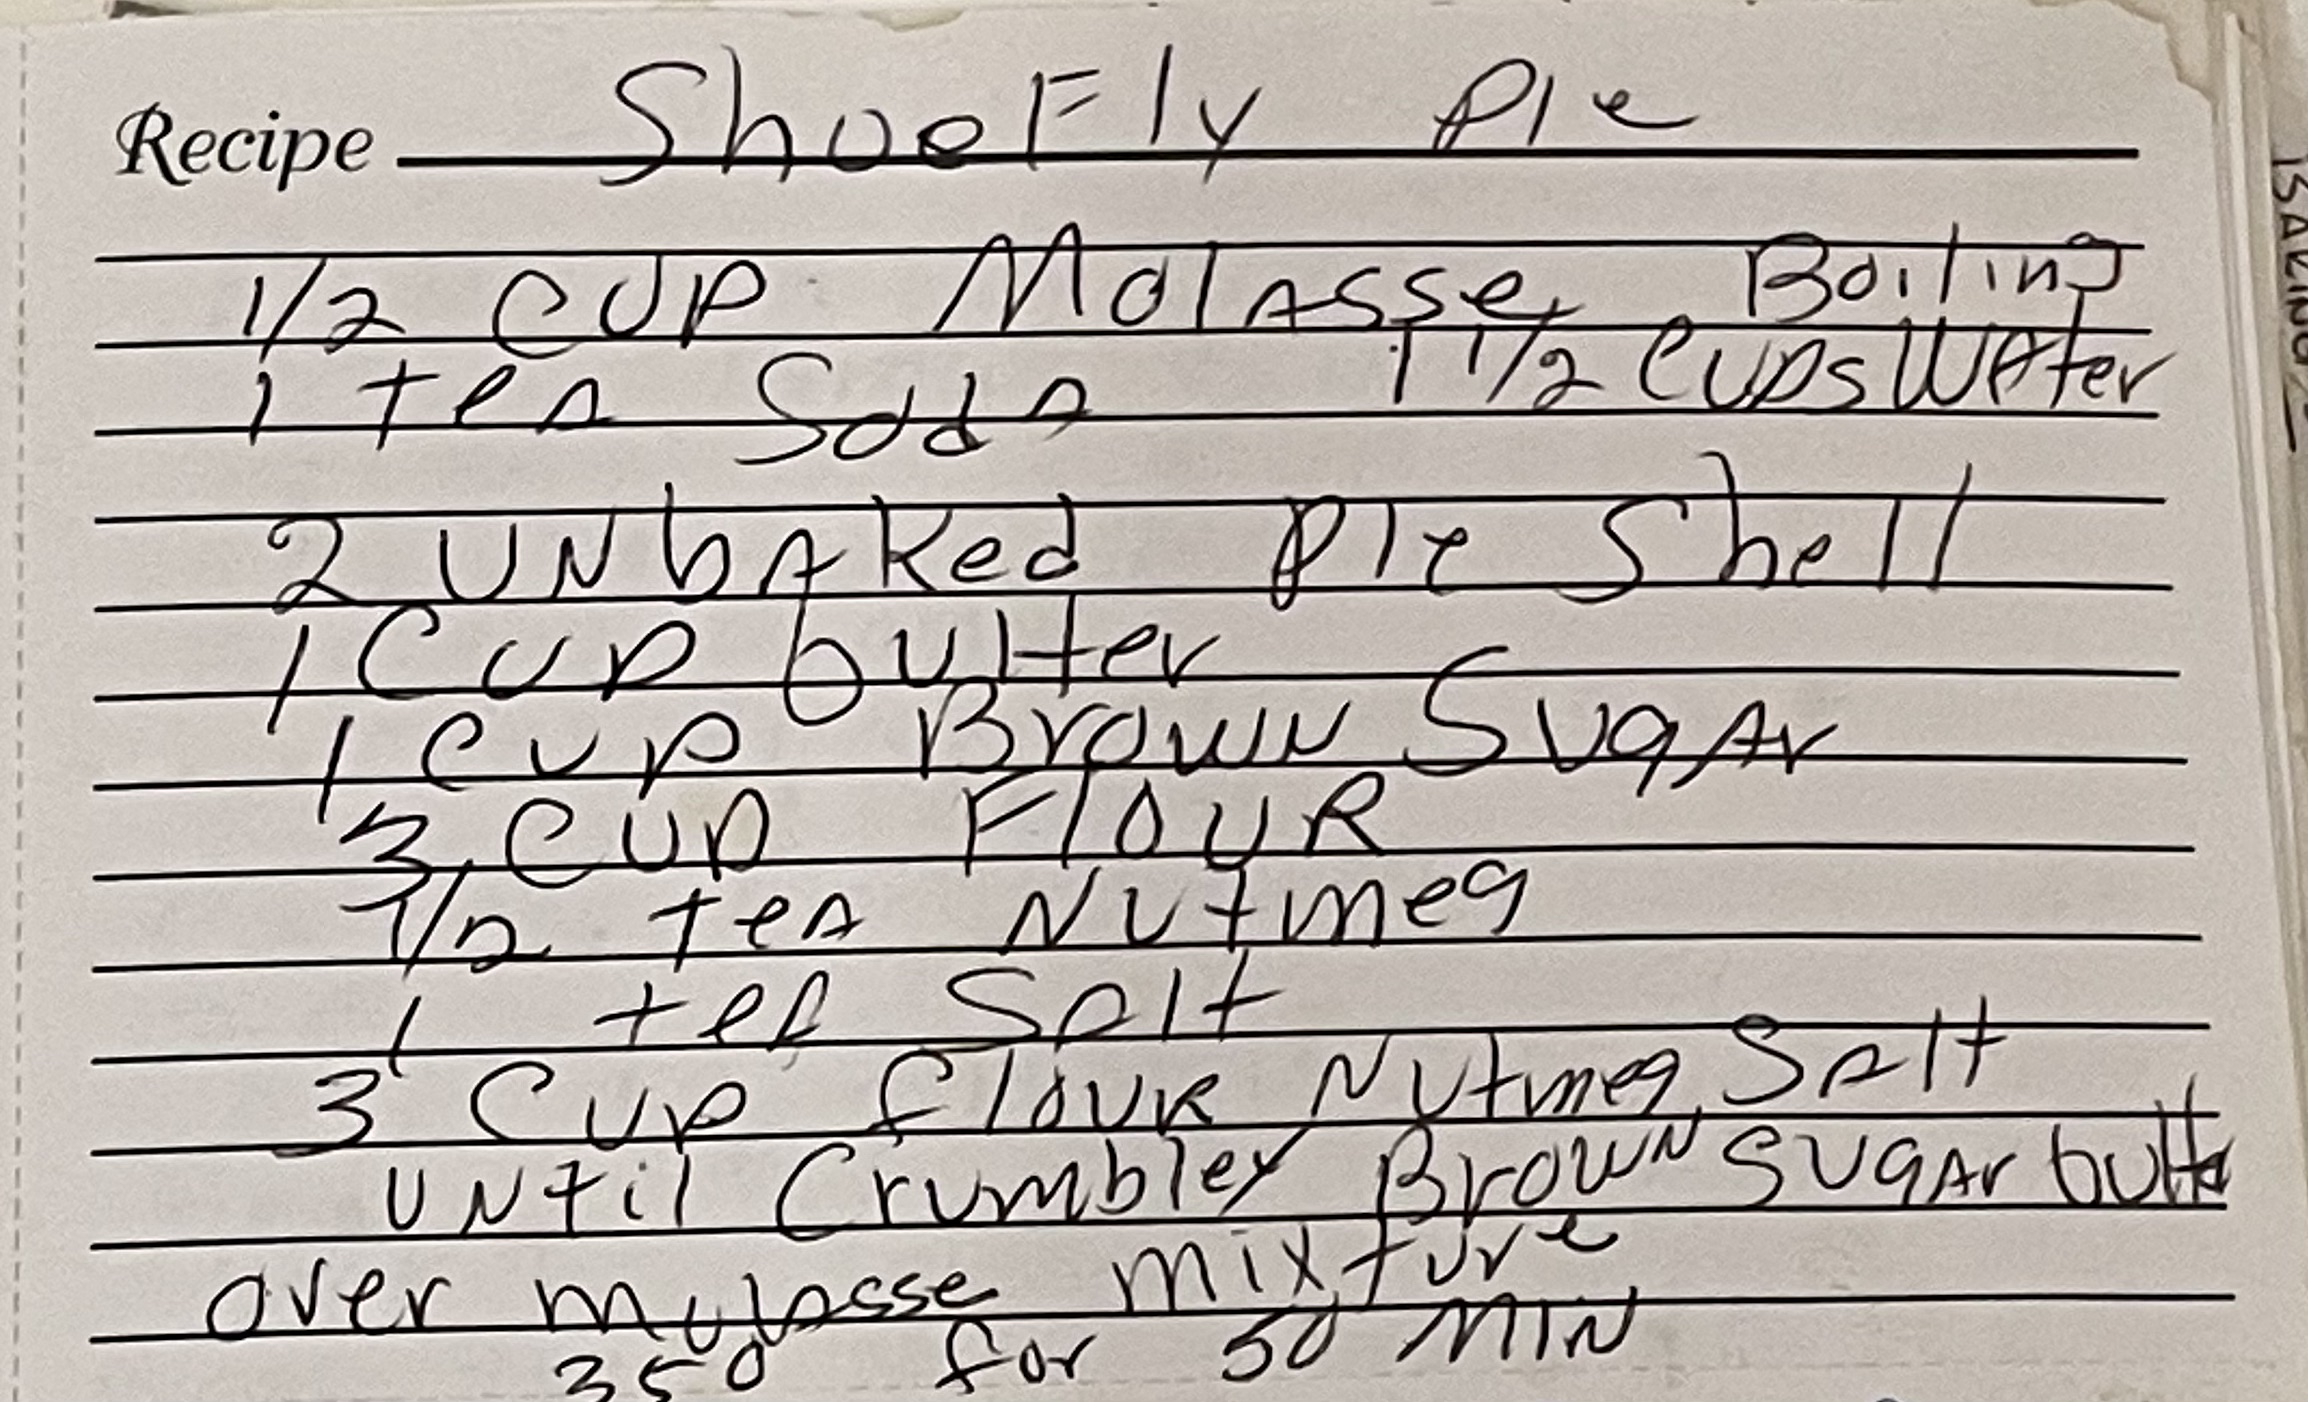 Recipe ShoeFly Pie
1/2 CUP Molasses Boiling
1 teA SodA 1 1/2 CUPS WAter
2 UNbAKed Pie Shell
1 CUP butter
1 CUP BrowN SugAr
3 CUP FloUR
1/2 teA NUtmeg
1 teA SAlt
3 CUP flouR NUtmeg, SAlt
UNtil Crumbley BrowN SUGAr butter
over mulAsse mixture
350 for 50 MIN
BAKING